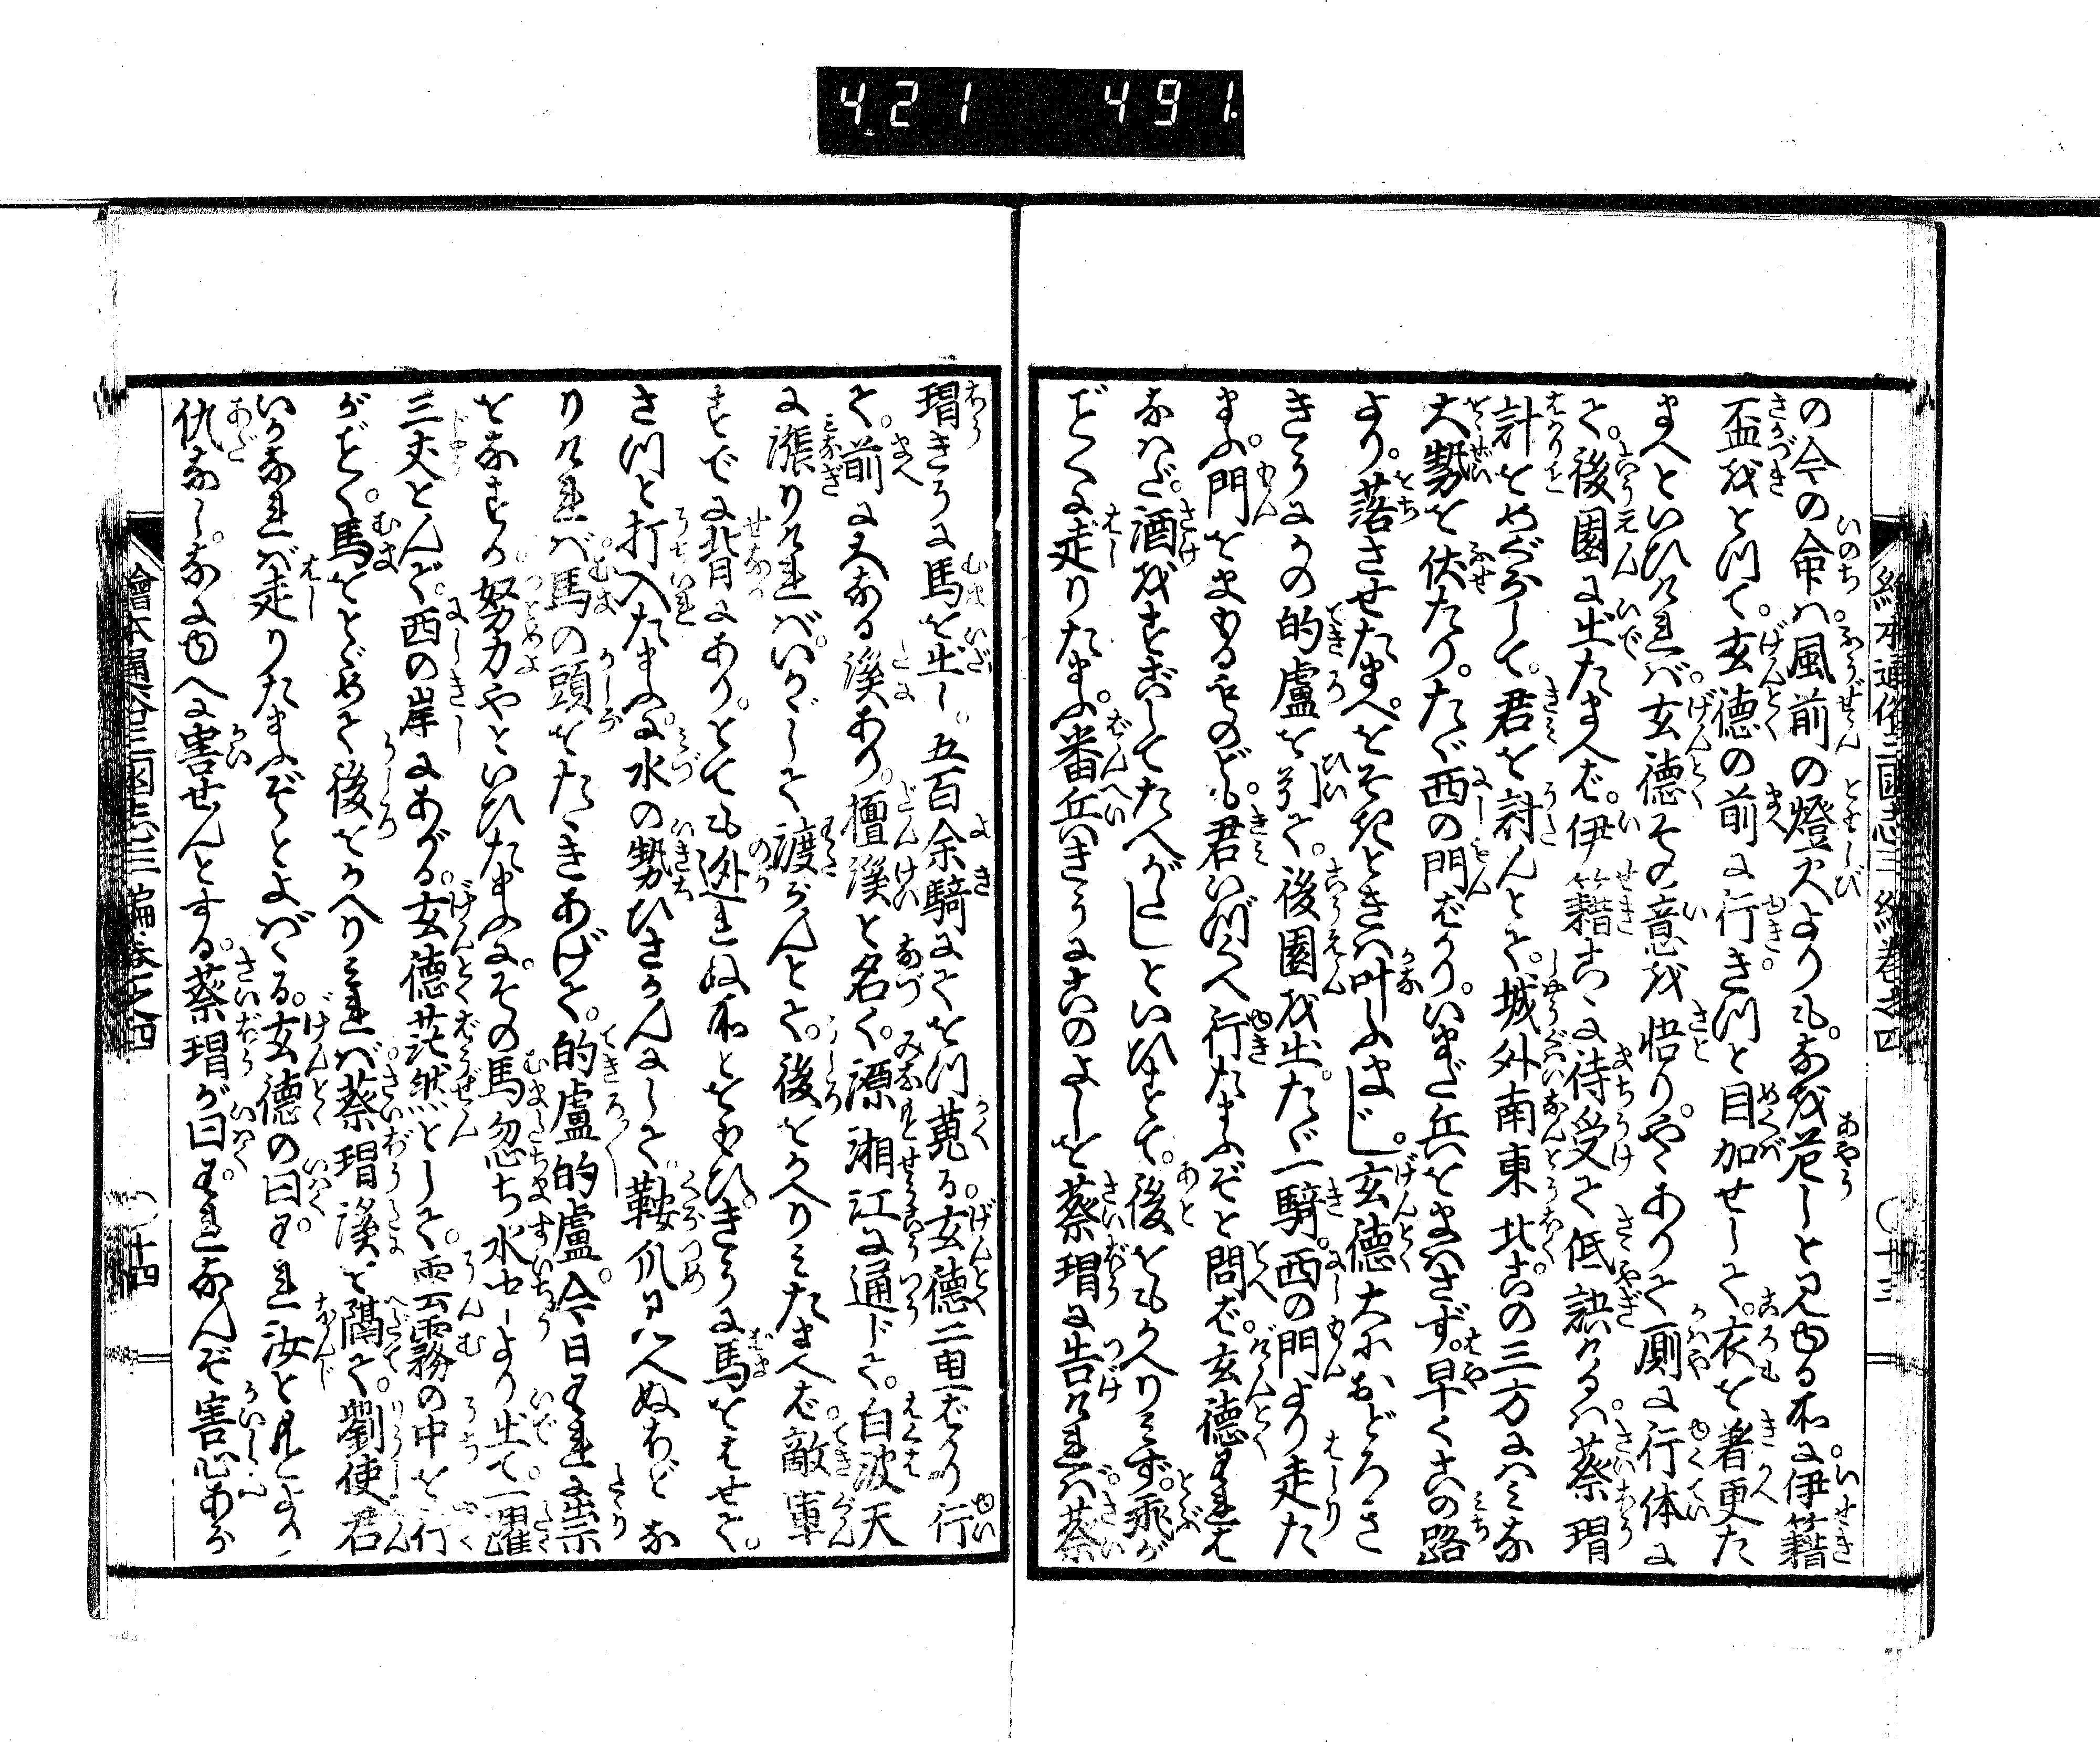 421 491
繪本通俗三國志三編卷之四 〇十三
の今の命ハ。風前の燈火よりも。なを危しと見ゆる所に。伊籍
盃をとつて。玄徳の前に行きつと目加せして。衣を着更た
まへといひければ。玄徳その意を悟り。やゝありて厠に行体に
て。後園に出たまへば。伊籍こゝに待受て低語けるハ。蔡瑁
計をめぐらして。君を討んとて。城外南東北この三方にハミな
大勢を伏たり。たゞ西の門ばかり。いまだ兵をまハさず。早くこの路
より。落させたまへ。をそきときハ叶ふまじ。玄徳大におどろき
きうにかの的盧を引て。後園を出。たゞ一騎。西の門より走た
まふ。門をまもるものども。君いづくへ行たまふぞと問ば。玄徳われは
なハだ。酒をすごしてたへがたしといひすてゝ。後をもかへりミず。飛が
ごとくに走りたまふ。番兵いきうにこのよしを蔡瑁に告ければ。蔡
瑁きうに馬を出し。五百余騎にてをつ蒐る。玄徳二里ばかり行
て。前に大なる渓あり。檀渓と名く。源湘江に通じて。白波天
に漲りければ。いかゞして渡らんとて。後をかへりミたまへば。敵軍
すでに背にあり。とても迯れぬ所とをもひ。きうに馬をはせて。
さつと打入たまふに。水の勢ひさかんにして。鞍爪ヨリ入ぬれどな
りければ。馬の頭をたゝきあげて。的盧的盧。今日われに祟
をなすか。努力やといひたまふに。その馬忽ち水中より出て。一躍
三丈とんで。西の岸にあがる。玄徳茫然として。雲霧の中を行
がごとく。馬をとゞめて後をかへりミれば。蔡瑁渓を隔て。劉使君
いかなれば走りたまふぞとよばゝる。玄徳の曰。われ汝と見より
仇なし。なにゆへに害せんとする。蔡瑁が曰。われなんぞ害心あら
繪本通俗三國志三編卷之四 〇十四